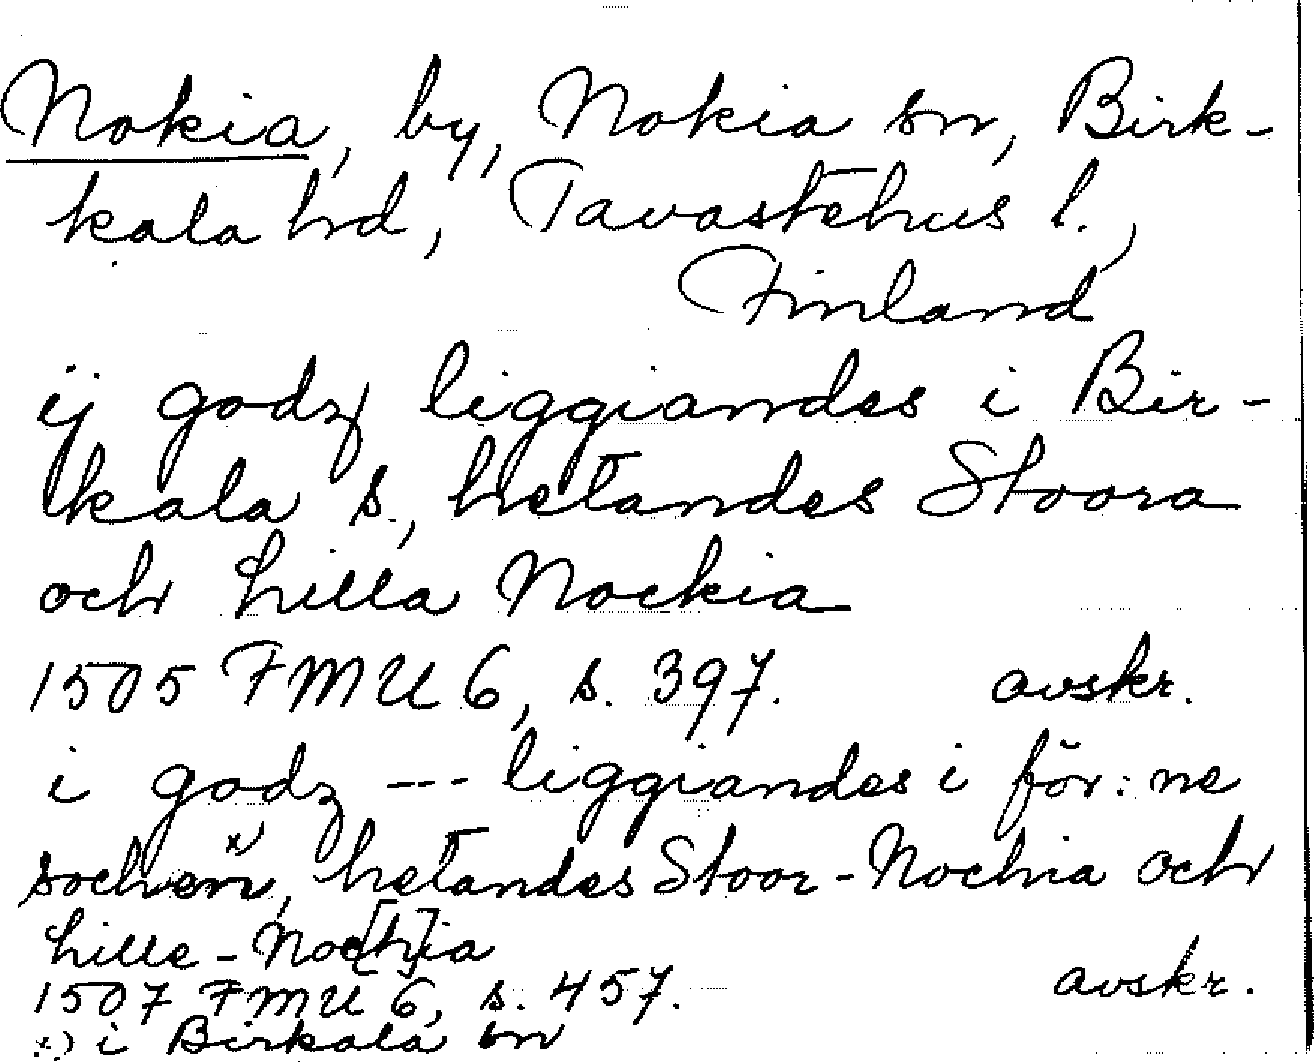 Nokia, by, Nokia sn, Birk-
kala hd, Tavastehus l.,
Finland
ij godz liggiandes i Bir-
kala s., hetandes Stoora
och Lilla Nockia
1505 FMU 6, s. 397. avskr.
i godz --- liggiandes i för:ne
sochen x), hetandes Stoor-Nochia och
Lille-Noc[h]ia
1507 FMU 6, s. 457. avskr.
x) i Birkala sn